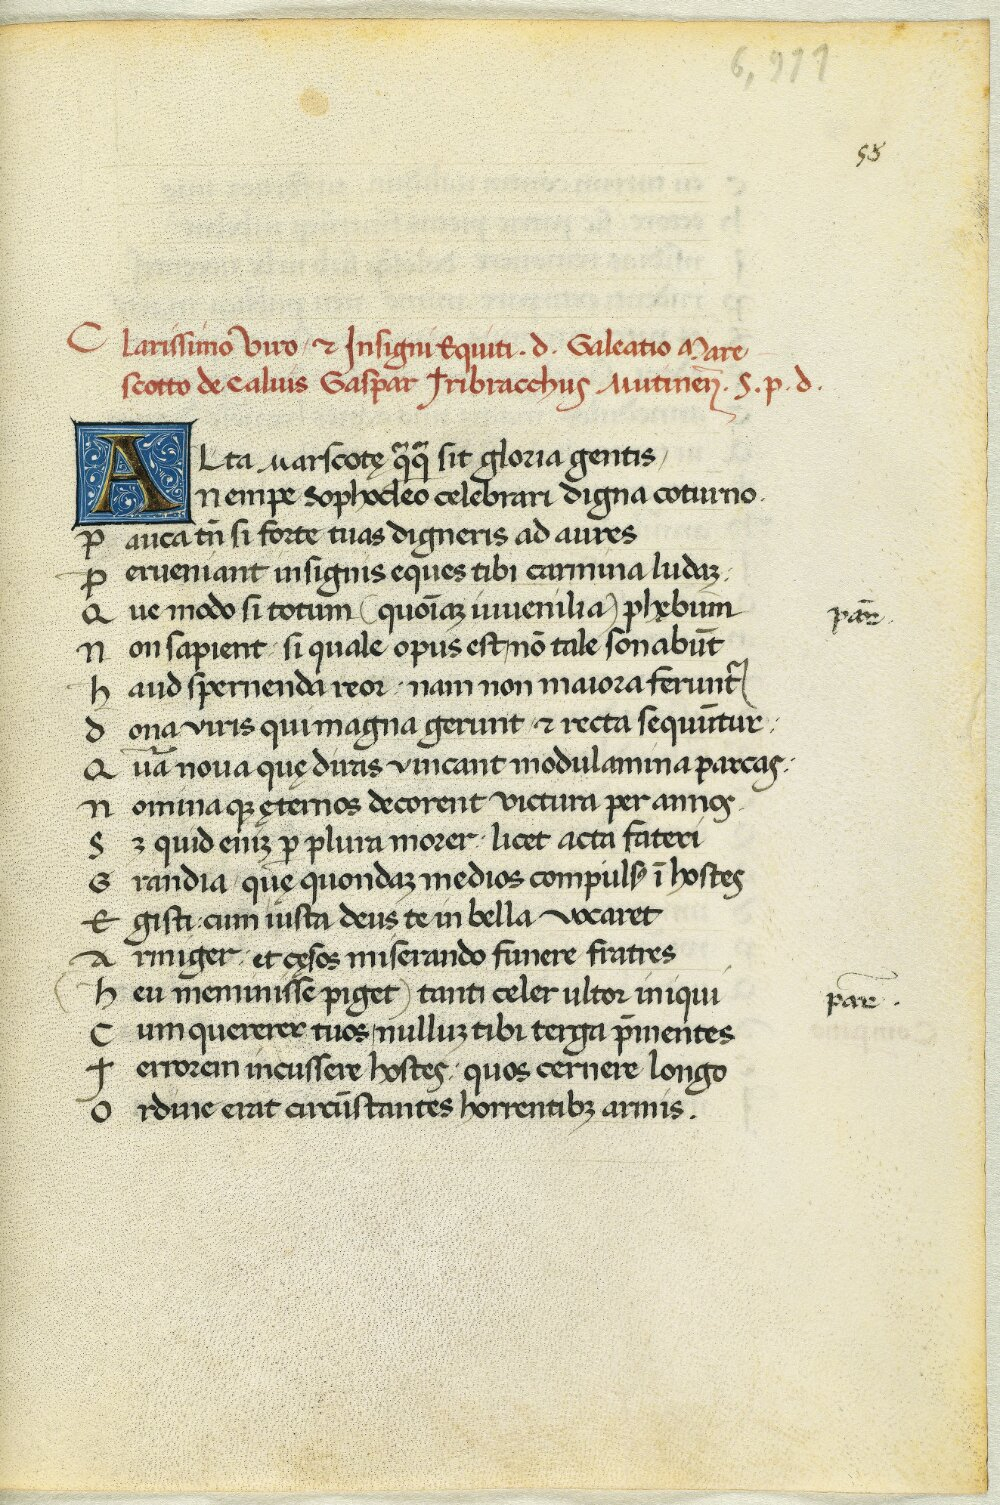 6, 911
55
Clarissimo Viro / & Insigni Equiti . d . Galeatio Mare
scotto de Caluis Gaspar Tribracchus Mutineñ . S . p . d .
ALta Marscotę q̃q̃ sit gloria gentis /
Nempe Sophocleo celebrari digna coturno .
Pauca tñ si forte tuas digneris ad aures
Perueniant insignis eques tibi carmina ludaꝫ .
Que modo si totum ( quoĩaꝫ iuuenilia ) phębum par̃ .
Non sapient : si quale opus est / nõ tale sonabũt
Haud spernenda reor : nam non maiora ferunt᷑
Dona viris qui magna gerunt & recta sequũtur :
Quã noua quę diras vincant modulamina parcas :
Nomina qꝫ ęternos decorent victura per annos .
Sꝫ quid eniꝫ p plura morer : licet acta fateri
Grandia / quę quondaꝫ medios compulsꝰ ĩ hostes
Egisti : cum iusta deus te in bella vocaret
Armiger : et cęsos miserando funere fratres
( Heu meminisse piget ) tanti celer ultor iniqui par̃ .
Cum quererer tuos / nulluꝫ tibi terga p̃mentes
Terrorem incussere hostes : quos cernere longo
Ordine erat circũstantes horrentibꝫ armis .